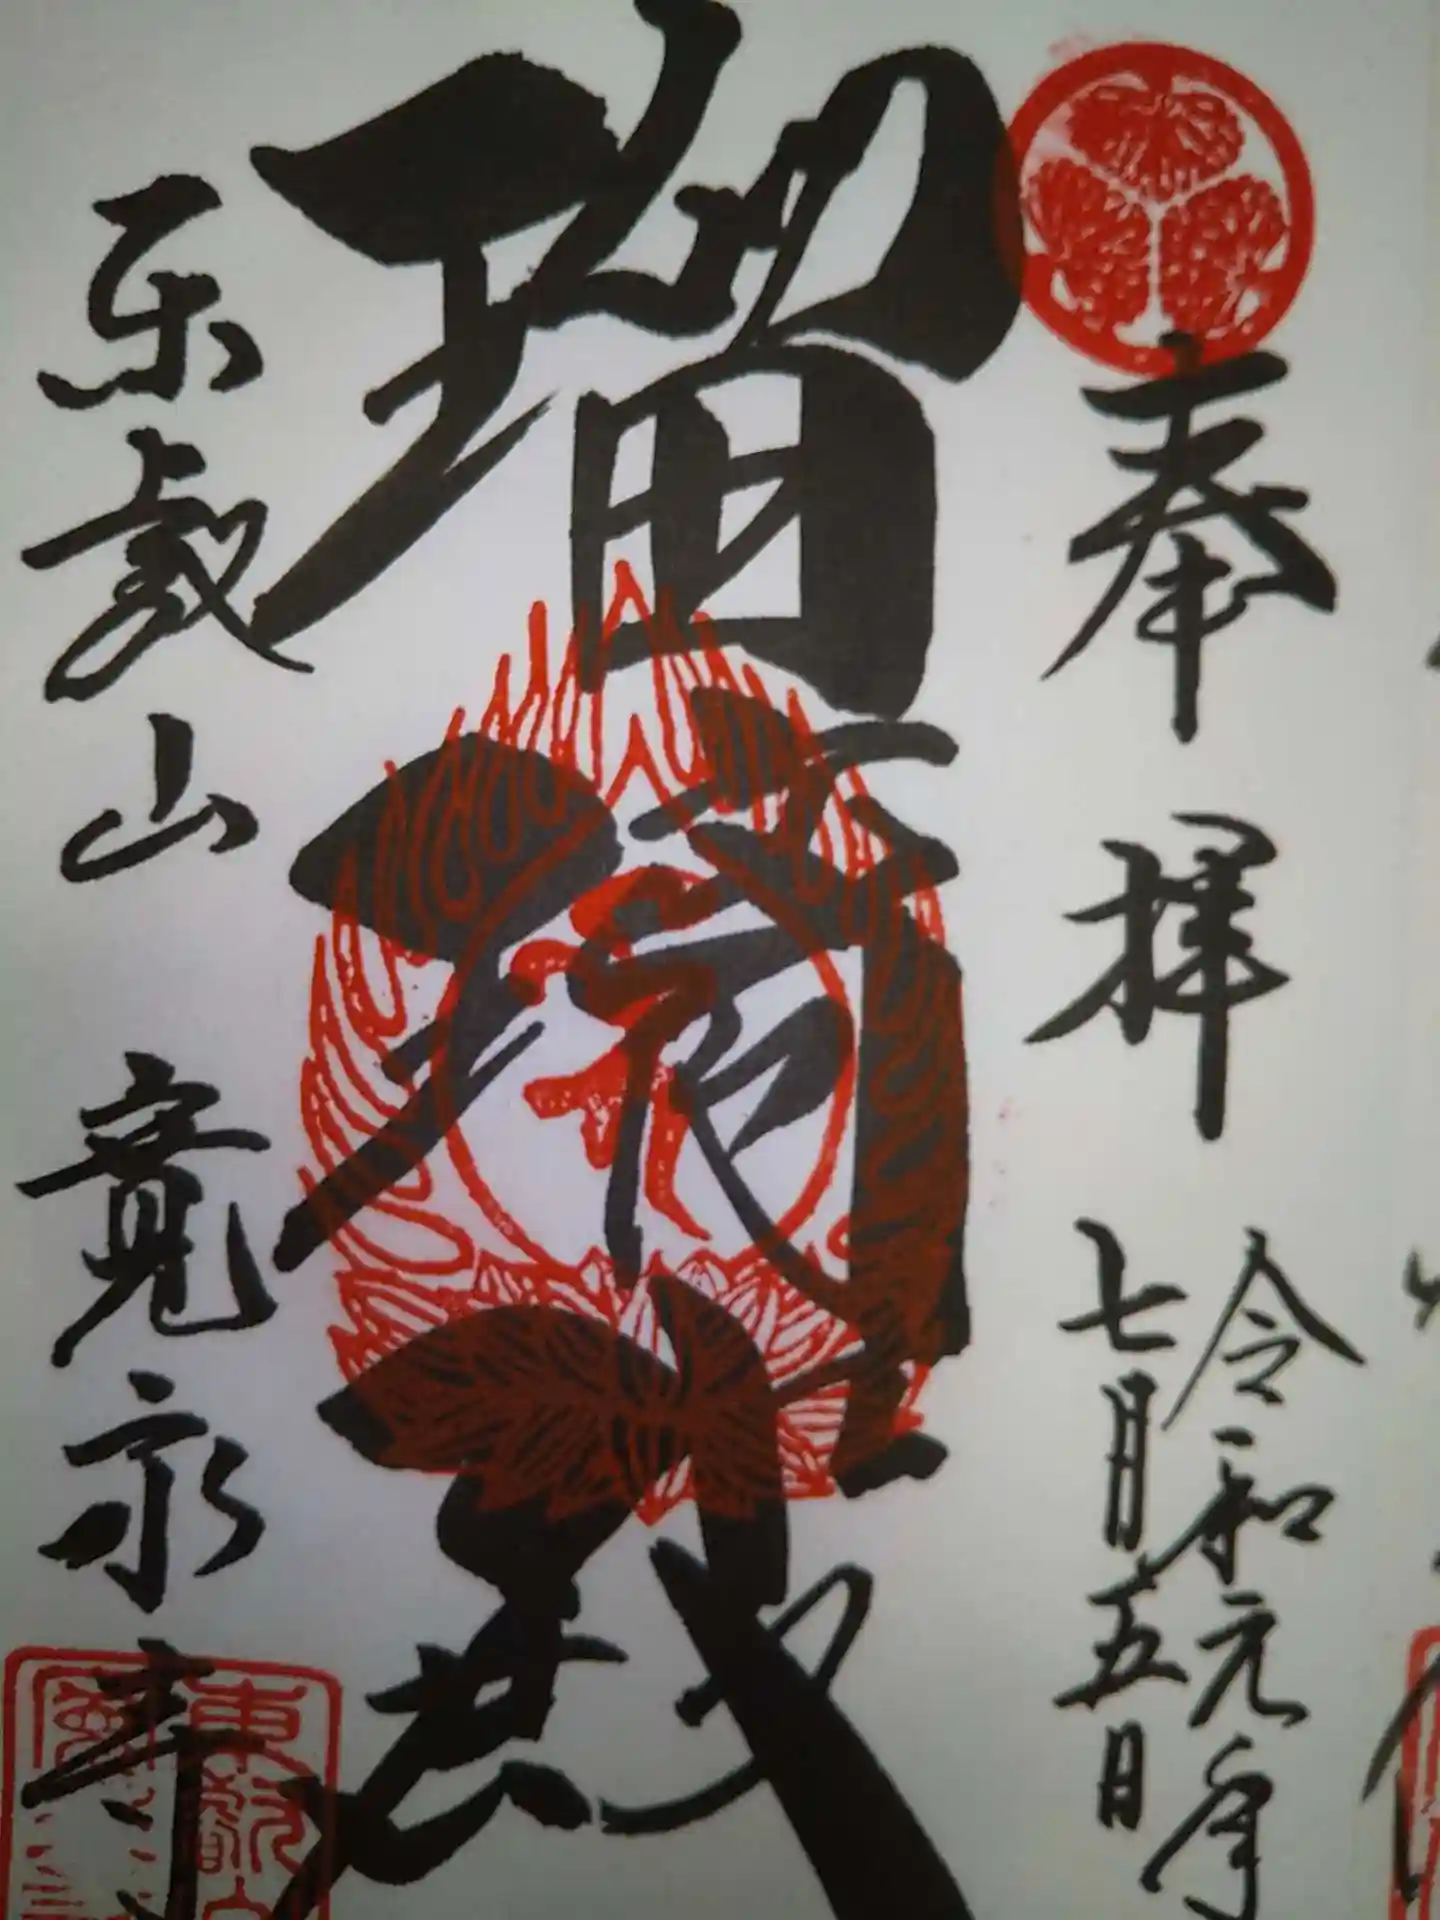 奉拝
令和元年
七月五日
瑠璃殿
東叡山 寛永寺
東叡山